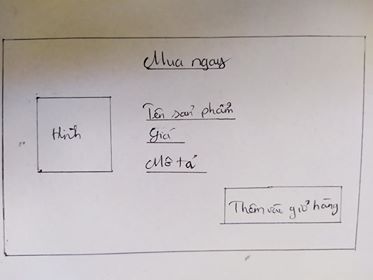 Mua ngay
Hình
Tên sản phẩm
Giá
Mô tả
Thêm vào giỏ hàng